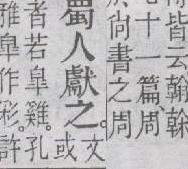 皆云翰
七十一篇、周
尙書之周
蜀人獻之。
文
或
者若皋雞。孔
雅皋作彩。許